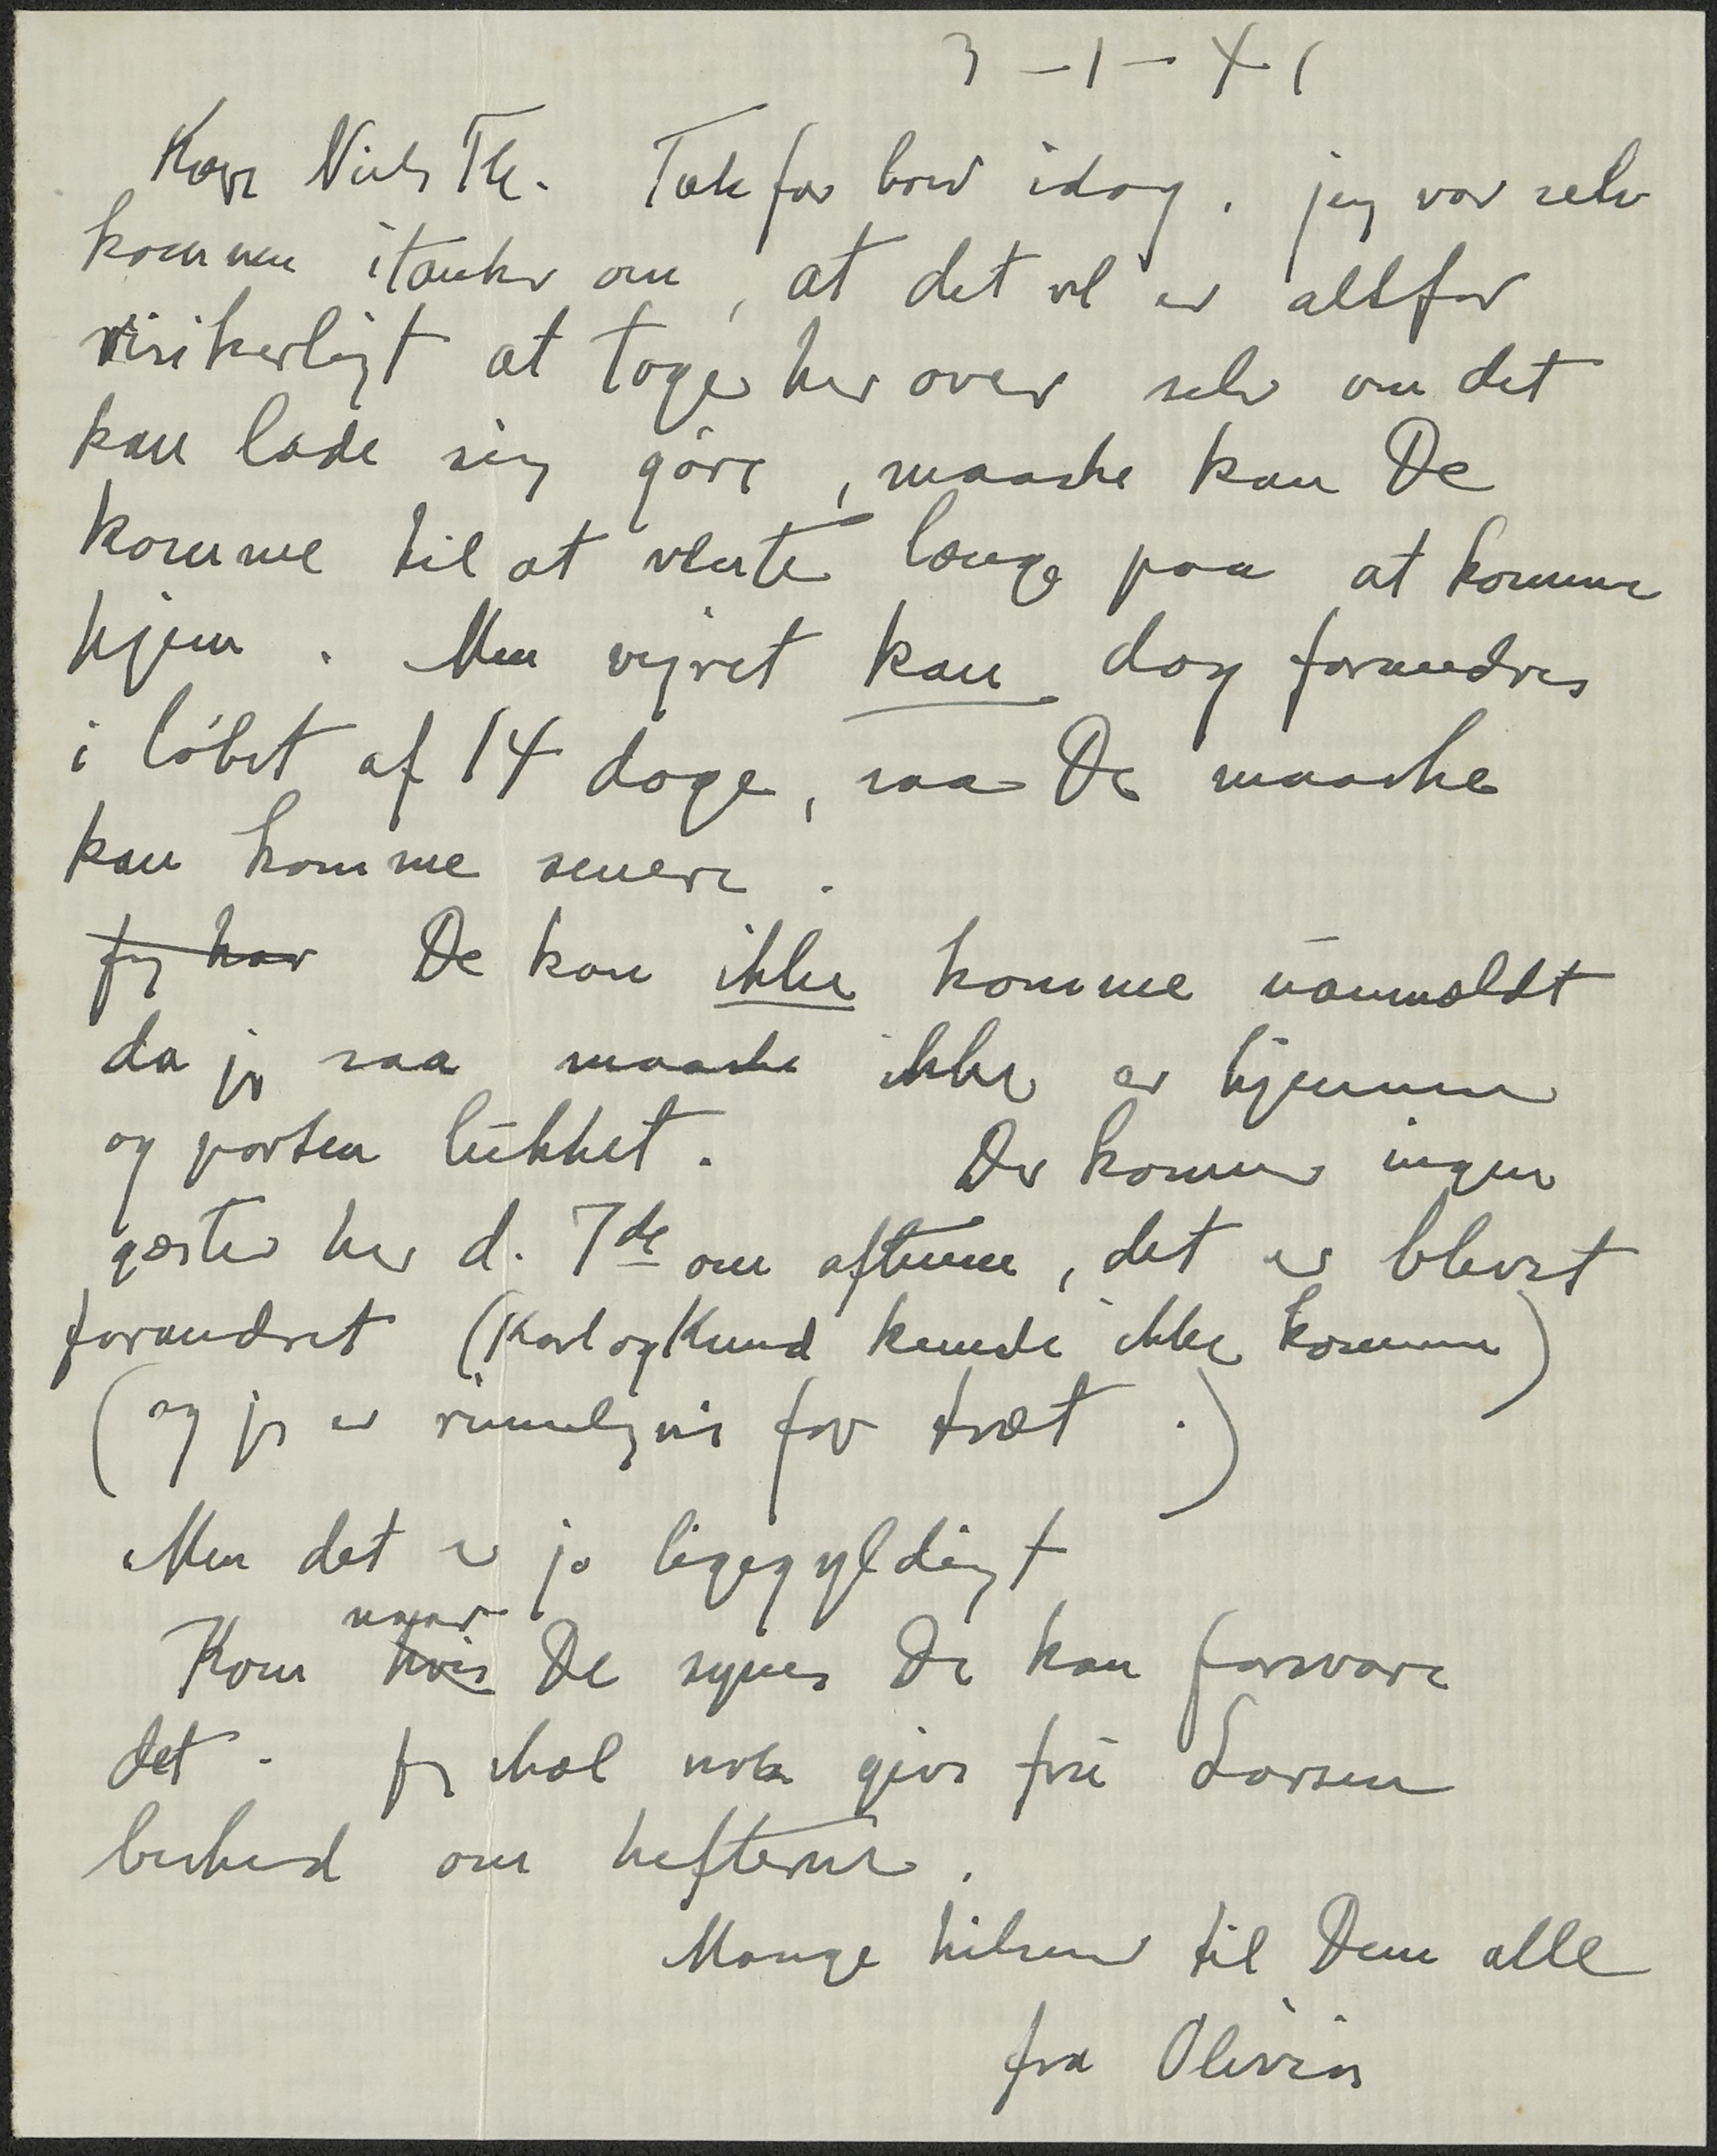 3-1-41
Kære Niels Th. Tak for brev idag. jeg var selv
kommen itanker om, at det vel er altfor
risikerligt at tage herover selv om det
kan lade sig göre, maaske kan De
komme til at vente længe paa at komme
hjem. Men vejret kan dog forandres
i löbet af 14 dage, saa De maaske
kan komme senere.
Jeg har De kan ikke komme uanmeldt
da jeg saa maaske ikke er hjemme
og porten lukket. Der kommer ingen
gæster her d. 7de om aftenen, det er blevet
forandret (Karl og Knud kunde ikke komme)
(og jeg er rimeligvis for træt.)
Men det er jo ligegyldigt
naar
Kom hvis De synes De kan forsvare
det. Jeg skal nok give fru Larsen
besked om hefterne.
Mange hilsner til Dem alle
fra Olivia